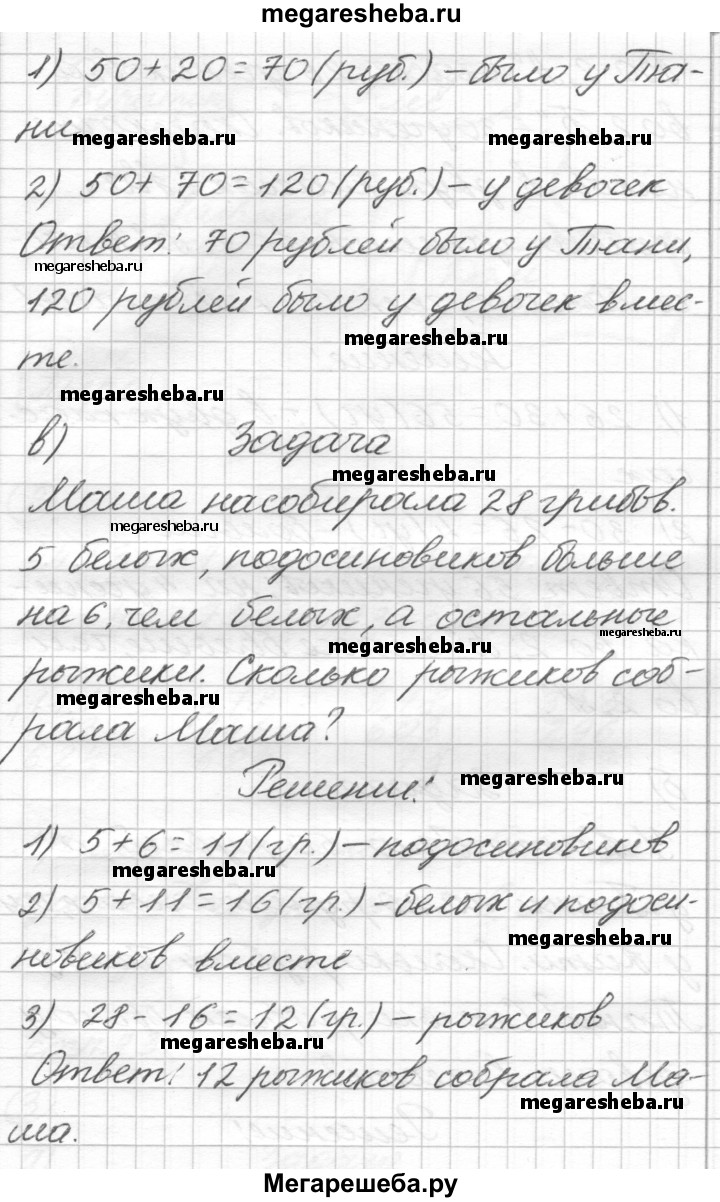 megaresheba.ru
1) 50 + 20 = 70 (руб.) – было у Та-
ни.
megaresheba.ru megaresheba.ru
2) 50 + 70 = 120 (руб.) – у девочек
Ответ: 70 рублей было у Тани,
megaresheba.ru
120 рублей было у девочек вмес-
megaresheba.ru
те.
megaresheba.ru
в) Задача
megaresheba.ru
Маша насобирала 28 грибов.
megaresheba.ru
5 белых, подосиновиков больше
на 6, чем белых, а остальные
megaresheba.ru megaresheba.ru
рыжики. Сколько рыжиков соб-
megaresheba.ru
рала Маша?
Решение:
megaresheba.ru
1) 5 + 6 = 11 (гр.) – подосиновиков
megaresheba.ru
2) 5 + 11 = 16 (гр.) – белых и подоси-
megaresheba.ru
новиков вместе
3) 28 - 16 = 12 (гр.) – рыжиков
megaresheba.ru
Ответ: 12 рыжиков собрала Ма-
megaresheba.ru
ша.
Мегарешеба.ру